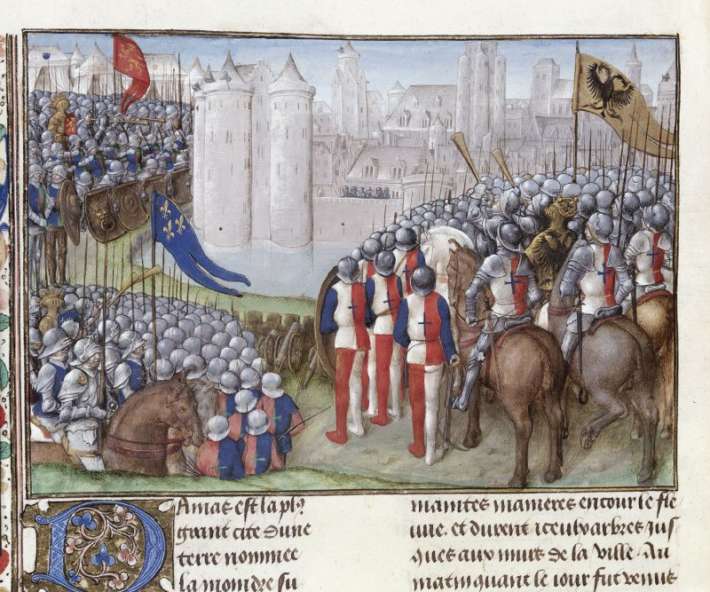 Damas est la pl9
grant cite dune
terre nommee
la moindre su
maintes manieres encour le fle
uue. et durent iceulx arbres jus
ques aux murs de la ville. Au
matin quant le jour fut venus